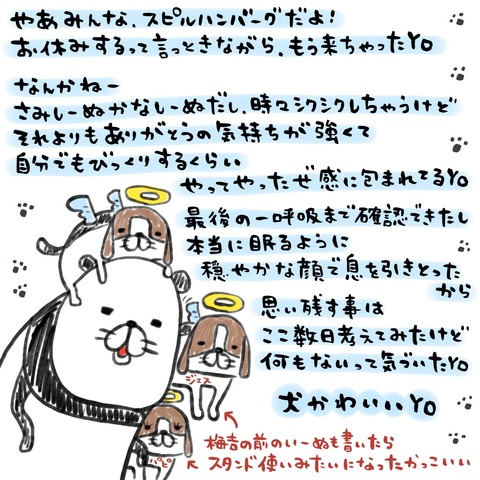 やあみんな、スピルハンバーグだよ!
お休みするって言っときながら、もう来ちゃったYO
なんかねー
さみしーぬかなしーぬだし、時々シクシクしちゃうけど
それよりもありがとうの気持ちが強くて
自分でもびっくりするくらい
やってやったぜ感に包まれてるYO
最後の一呼吸まで確認できたし
本当に眠るように
穏やかな顔で息を引きとった
から
思い残す事は
ここ数日考えてみたけど
何もないって気づいたYO
犬かわいいYO
ジェス
梅吉の前のいーぬも書いたら
スタンド使いみたいになったかっこいい
パピ